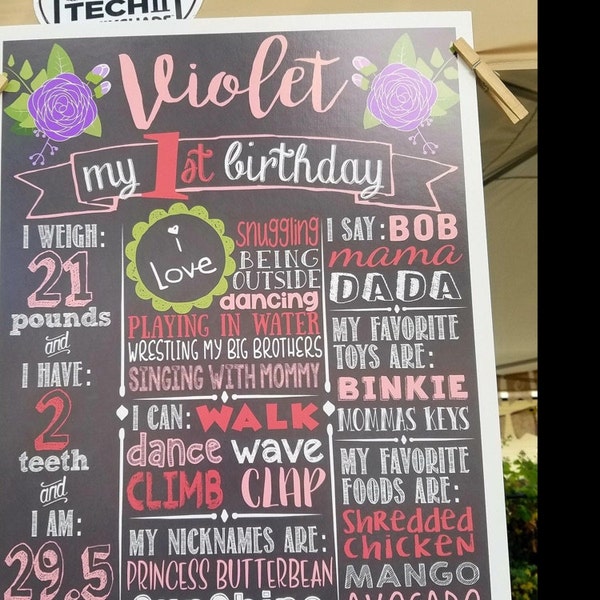 TECH II
Violet
my 1st birthday
I WEIGH:
21
pounds
and
I HAVE:
2
teeth
and
I AM:
29.5
i
Love
snuggling
BEING
OUTSIDE
dancing
PLAYING IN WATER
WRESTLING MY BIG BROTHERS
SINGING WITH MOMMY
I CAN: WALK
dance wave
CLIMB CLAP
MY NICKNAMES ARE:
PRINCESS BUTTERBEAN
Sunshine
I SAY: BOB
mama
DADA
MY FAVORITE
TOYS ARE:
BINKIE
MOMMAS KEYS
MY FAVORITE
FOODS ARE:
Shredded
chicken
MANGO
AVOCADO